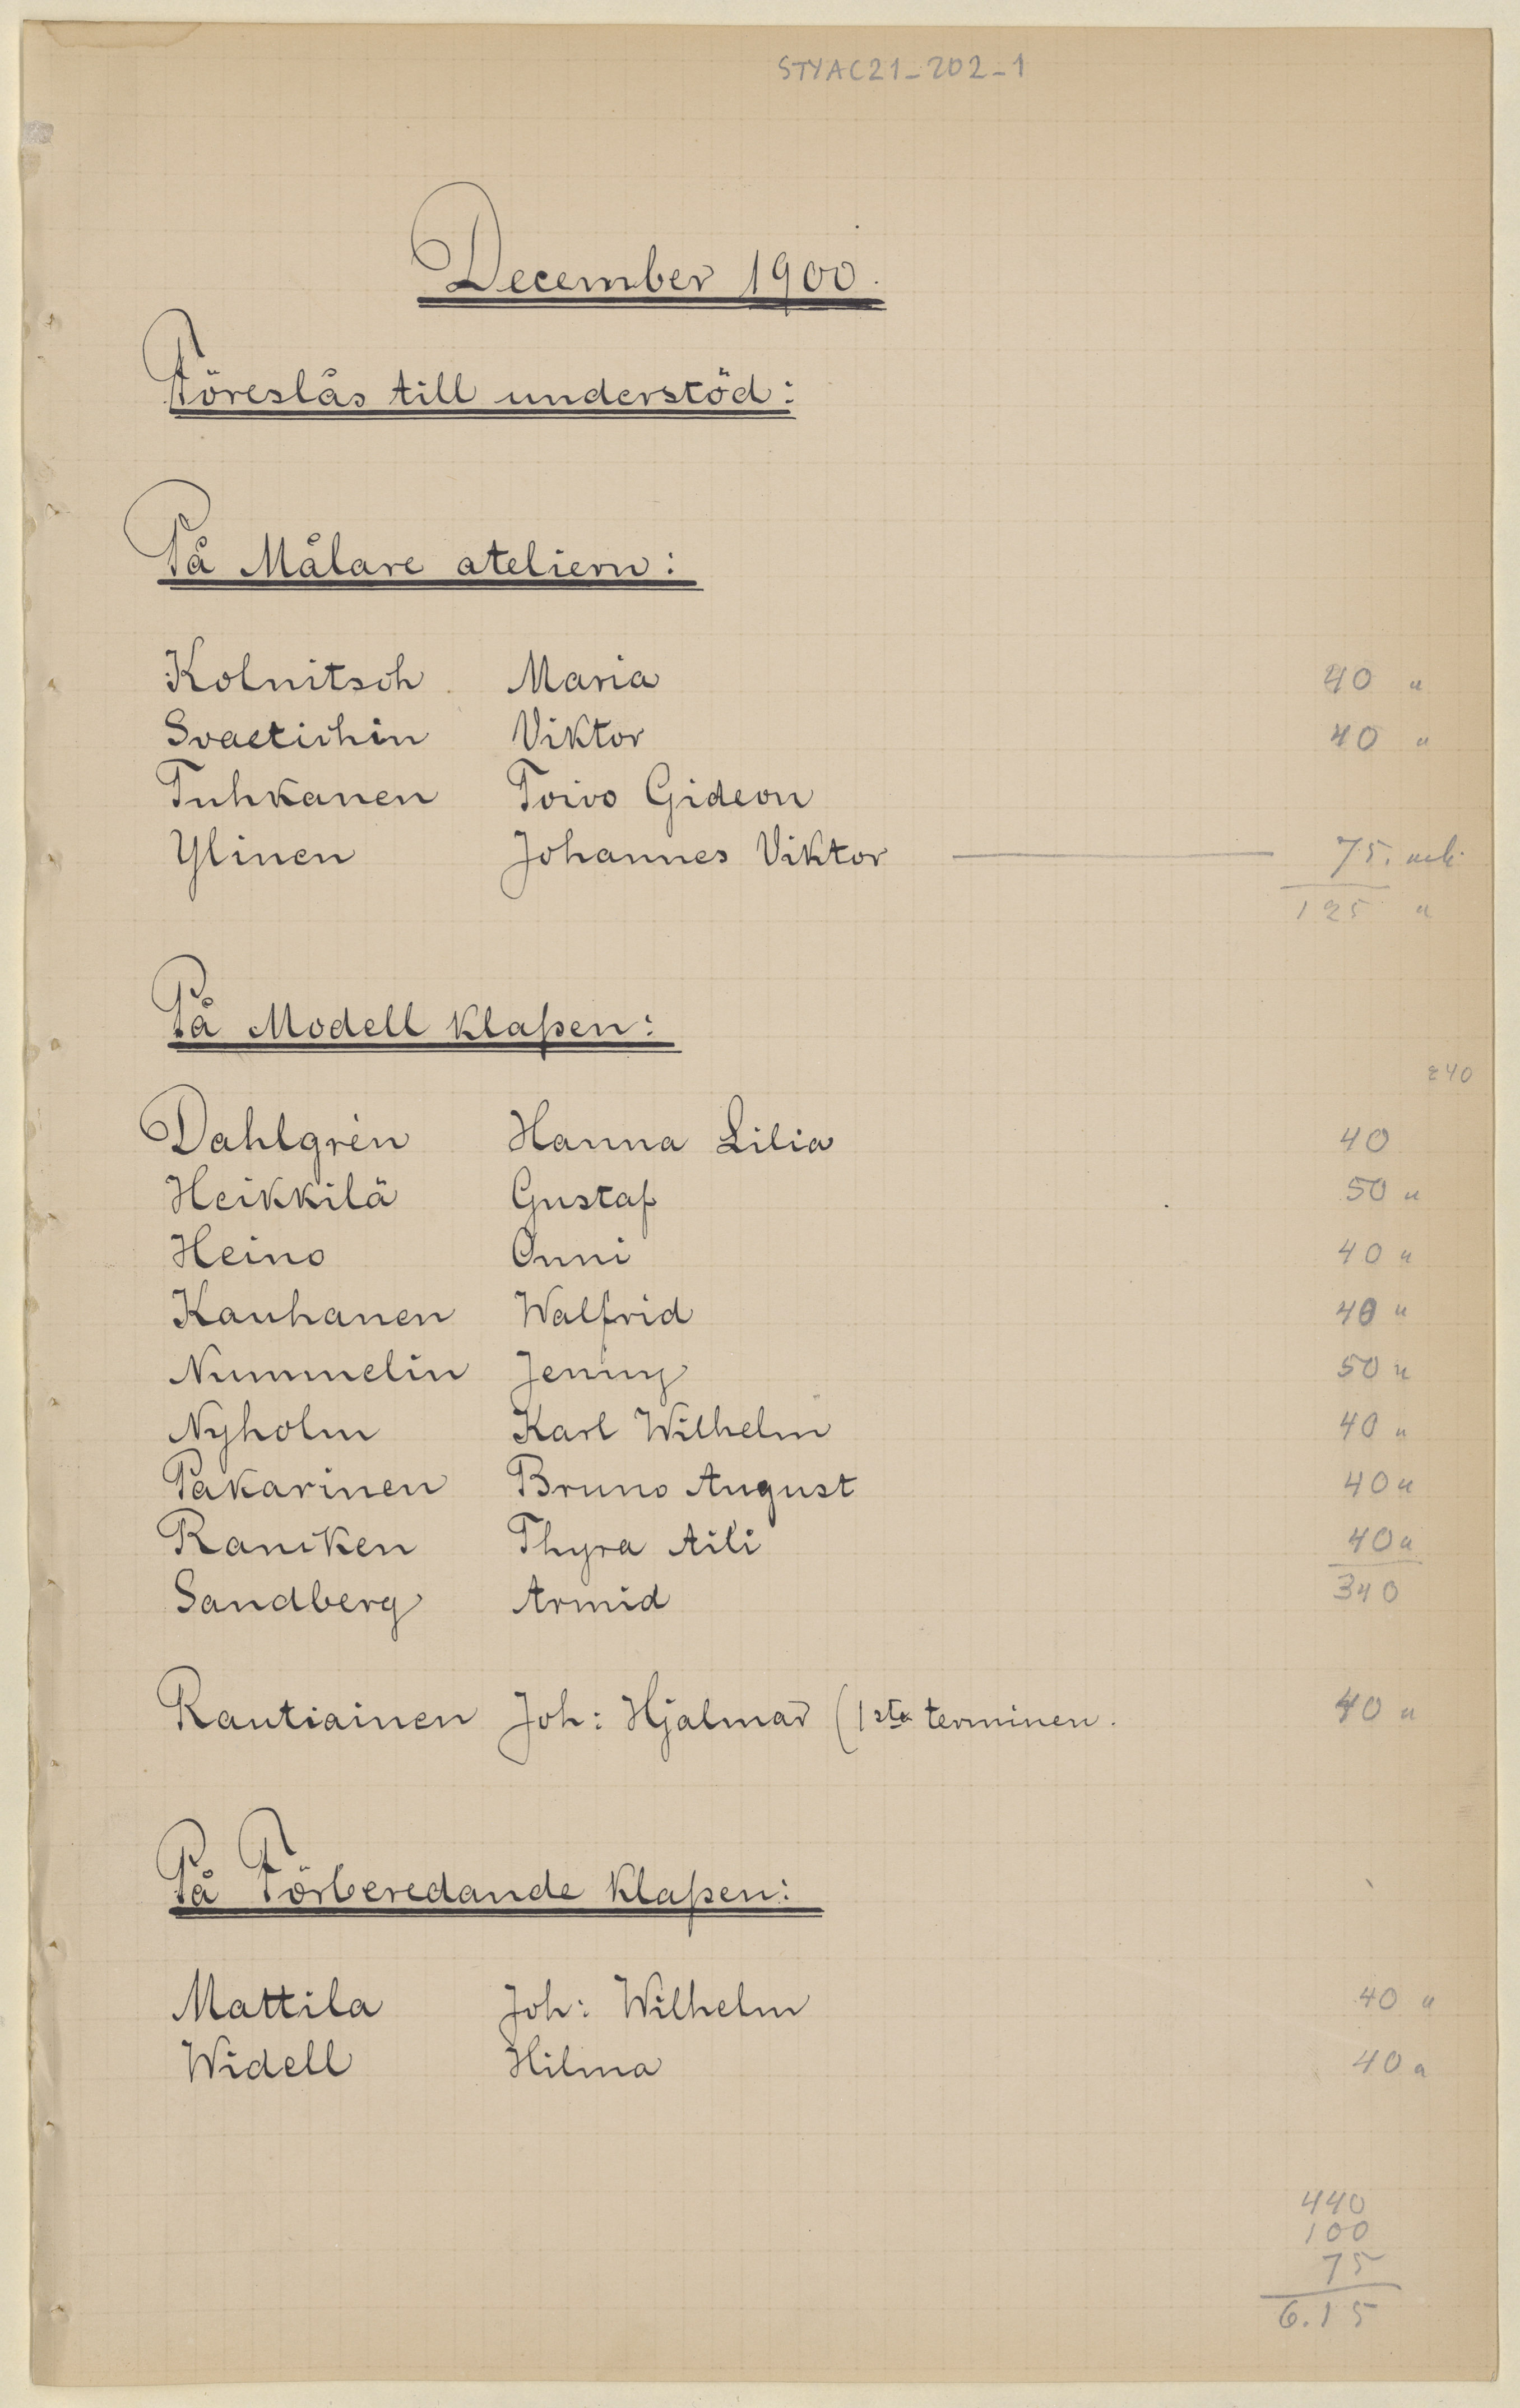 STYAC21_202_1
December 1900.
Föreslås till understöd:
På Målare ateliern:
Kolnitsch Maria 40 "
Svaetichin Viktor 40 "
Tuhkanen Toivo Gideon
Ylinen Johannes Viktor — 75. mk.
125 "
På Modell klaßen:
240
Dahlgrén Hanna Lilia 40
Heikkilä Gustaf 50 "
Heino Onni 40 "
Kauhanen Walfrid 40 "
Nummelin Jenny 50 "
Nyholm Karl Wilhelm 40 "
Pakarinen Bruno August 40 "
Raniken Thyra Aili 40 "
340
Sandberg Armid
Rautiainen Joh: Hjalmar (1sta terminen. 40 "
På Förberedande klaßen:
Mattila Joh: Wilhelm 40 "
Widell Hilma 40 "
440
100
75
6.15